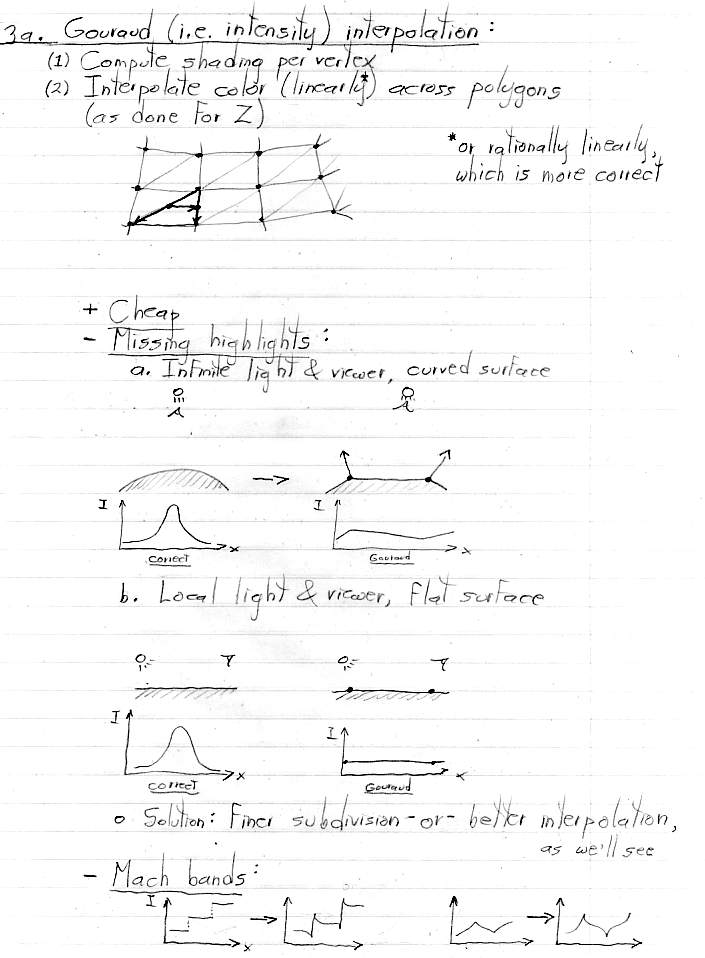 3a. Gouraud (i.e. intensity) interpolation:
(1) Compute shading per vertex
(2) Interpolate color (linearly*) across polygons
(as done for Z)
*or rationally linearly,
which is more correct
+ Cheap
- Missing highlights:
a. Infinite light & viewer, curved surface
I
x
Correct
I
x
Gouraud
b. Local light & viewer, flat surface
I
x
Correct
I
x
Gouraud
o Solution: Finer subdivision -or- better interpolation,
as we'll see
- Mach bands:
I
x